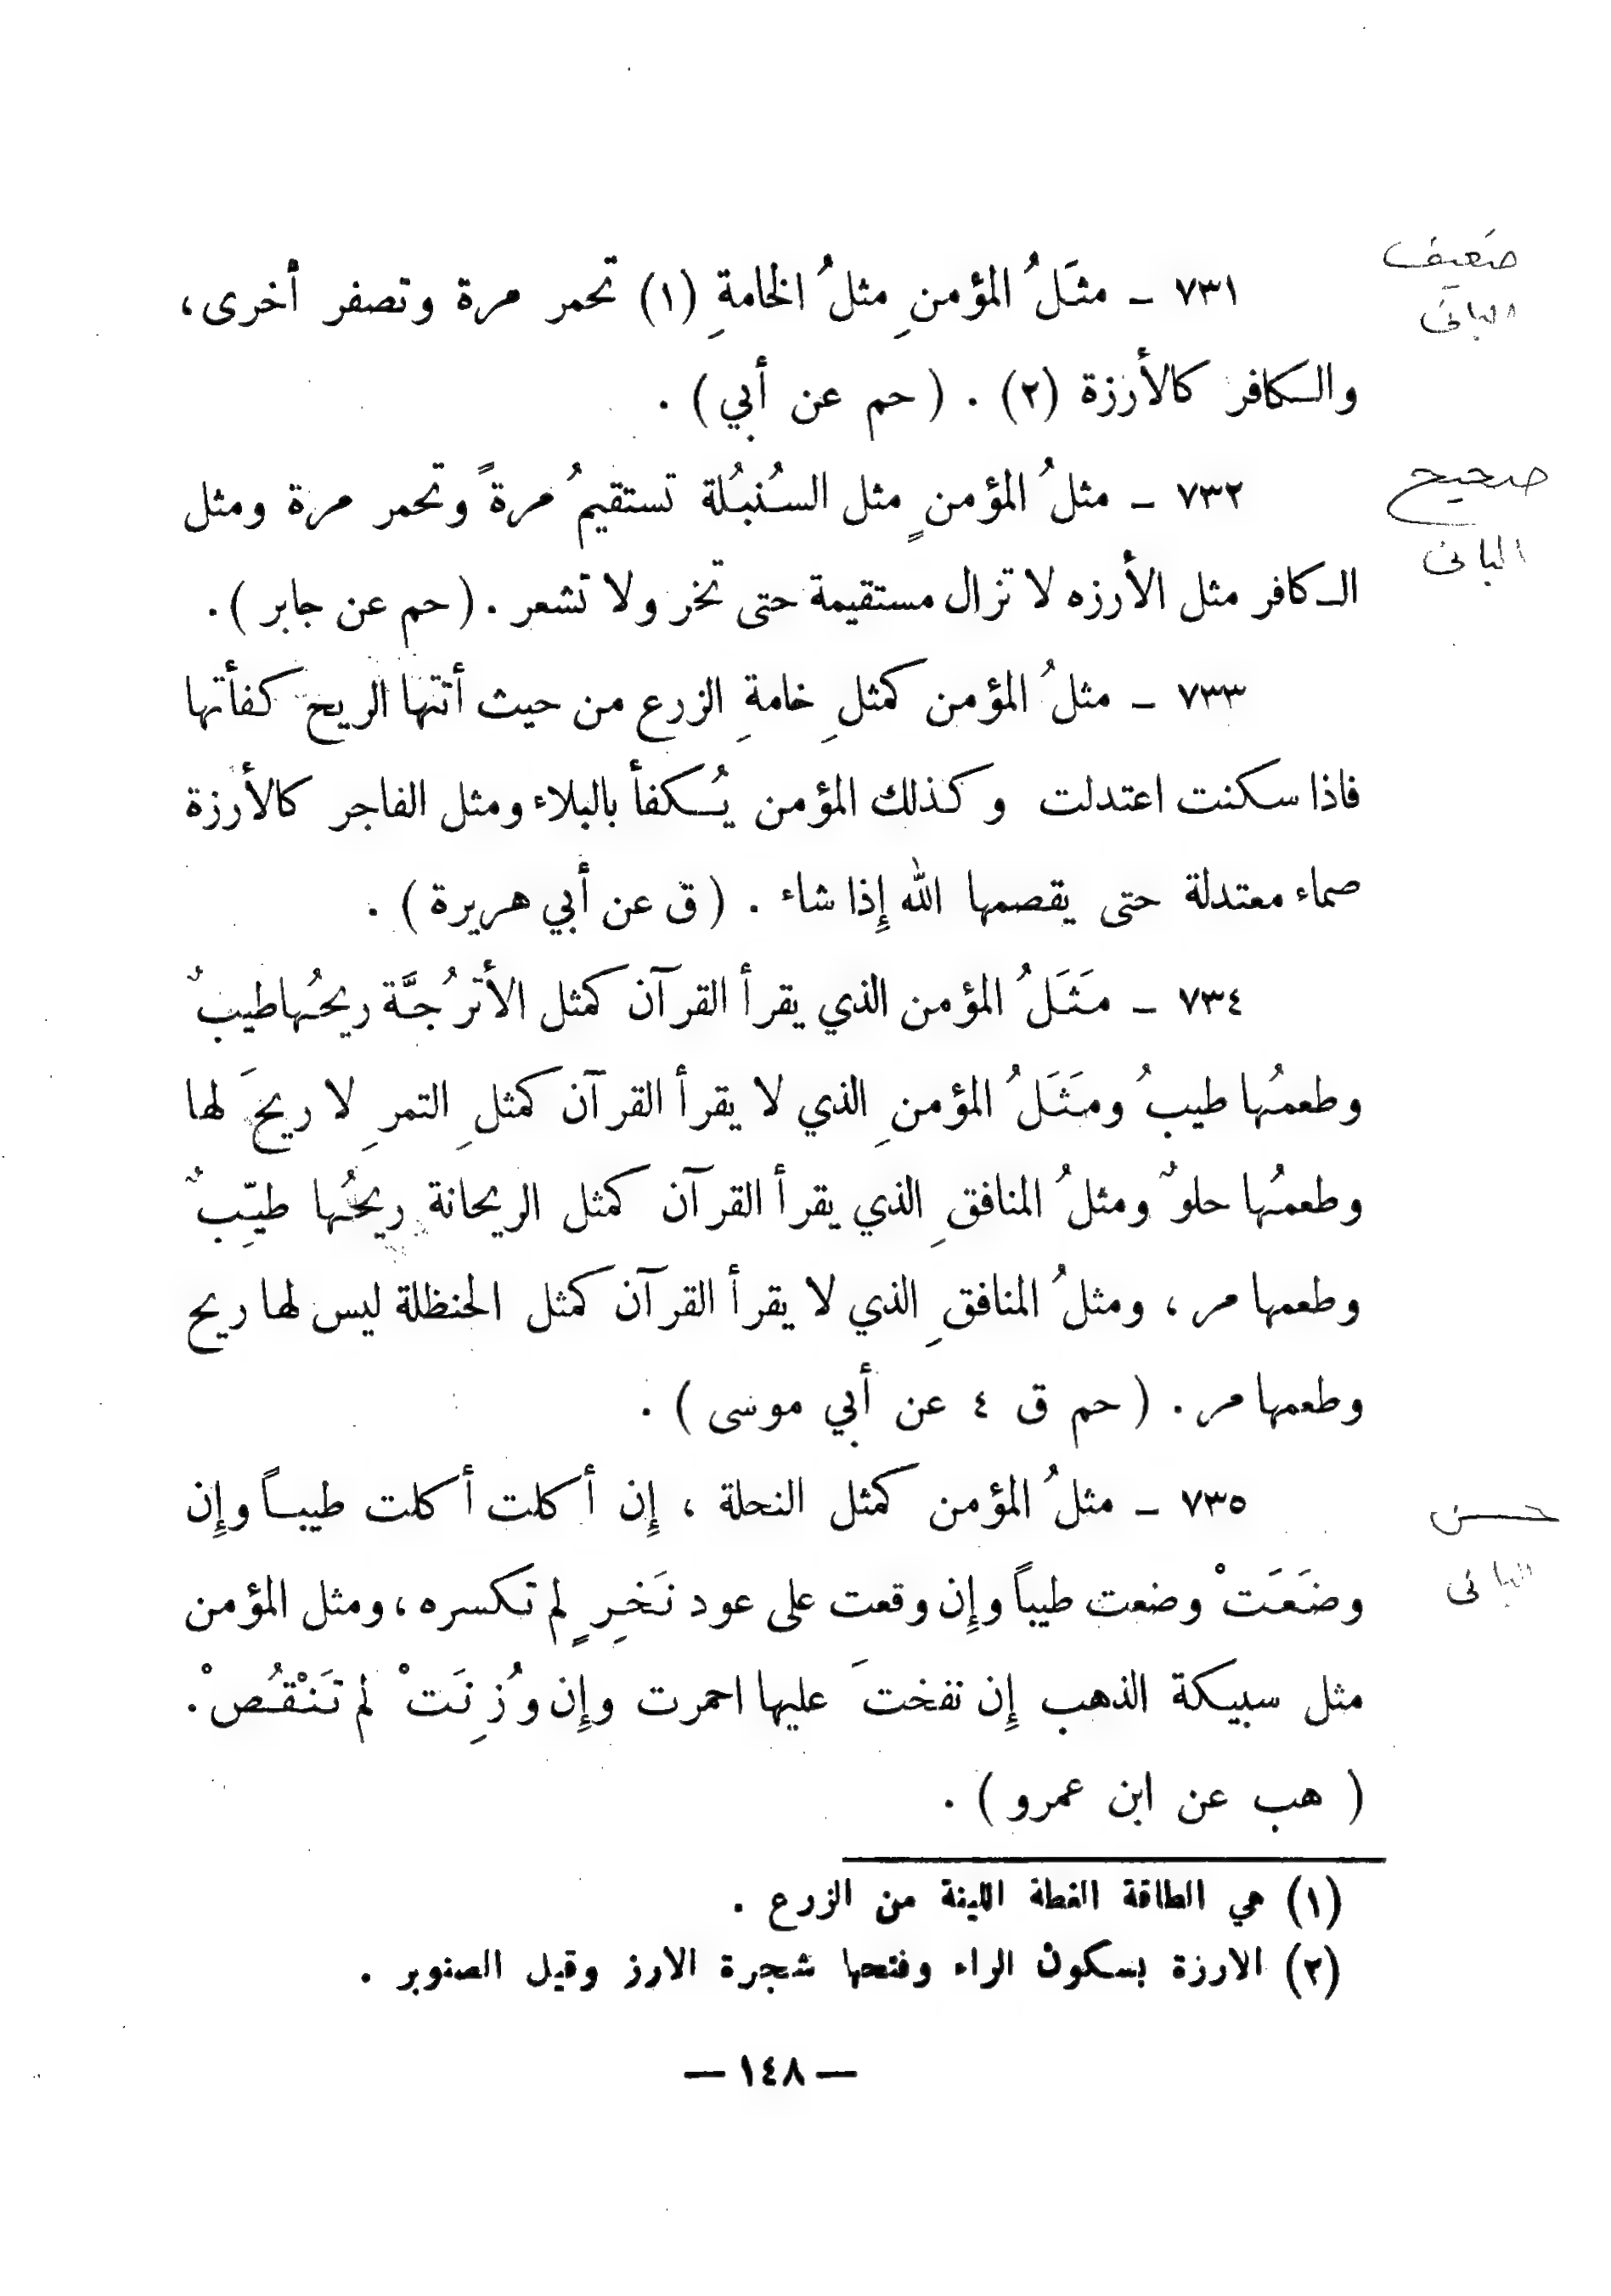 ٧٣١ ـ مثَلُ المؤمنِ مثلُ الخامةِ (١) تحمر مرة وتصفر أخرى،
ضعيف
البانى
والكافر كالأرزة (٢) . ( حم عن أبي ) .
٧٣٢ ـ مثلُ المؤمنٍ مثل السُنبُلة تستقيمُ مرةً وتحمر مرة ومثل
صحيح
البانى
الكافر مثل الأرزه لا تزال مستقيمة حتى تخر ولا تشعر . ( حم عن جابر ) .
٧٣٣ ـ مثلُ المؤمن كمثلِ خامةِ الزرع من حيث أتتها الريح كفأتها
فاذا سكنت اعتدلت وكذلك المؤمن يُكفأ بالبلاء ومثل الفاجر كالأرزة
صماء معتدلة حتى يقصمها الله إِذا شاء . ( ق عن أبي هريرة ) .
٧٣٤ ـ مَثَلُ المؤمن الذي يقرأ القرآن كمثل الأترُجَّة ريحُها طيبٌ
وطعمُها طيبُ ومَثَلُ المؤمنِ الذي لا يقرأ القرآن كمثلِ التمرِ لا ريحَ لها
وطعمُها حلوٌ ومثلُ المنافقِ الذي يقرأ القرآن كمثل الريحانة ريحُها طيّبٌ
وطعمها مر ، ومثلُ المنافقِ الذي لا يقرأ القرآن كمثل الحنظلة ليس لها ريح
وطعمها مر . ( حم ق ٤ عن أبي موسى ) .
٧٣٥ ـ مثلُ المؤمن كمثل النحلة ، إِن أكلت أكلت طيباً وإِن
حسن
البانى
وضَعَتْ وضعت طيباً وإِن وقعت على عود نَخِرٍ لم تكسره ، ومثل المؤمن
مثل سبيكة الذهب إِن نفختَ عليها احمرت وإِن وُزِنَتْ لم تَنْقُصْ .
( هب عن ابن عمرو ) .
(١) هي الطاقة الغطة اللينة من الزرع .
(٢) الارزة بسكون الراء وفتحها شجرة الارز وقيل الصنوبر .
— ١٤٨ —